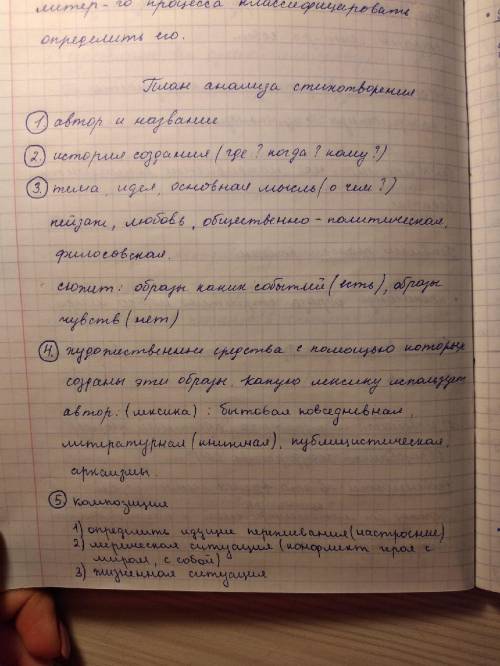 литер-го процесса классифицировать
определить его.
План анализа стихотворения
1. автор и название
2. история создания (где? когда? кому?)
3. тема, идея, основная мысль (о чем?)
пейзаж, любовь, общественно-политическая,
филосовская.
сюжет: образы каких событий (есть), образы
чувств (нет)
4. художественные средства с помощью которых
созданы эти образы. какую лексику использует
автор: (лексика): бытовая повседневная,
литературная (книжная), публицистическая,
архаизмы.
5 композиция
1) определить идущие переживания (настроение)
2) лирическая ситуация (конфликт героя с
миром, с собой)
3) жизненная ситуация